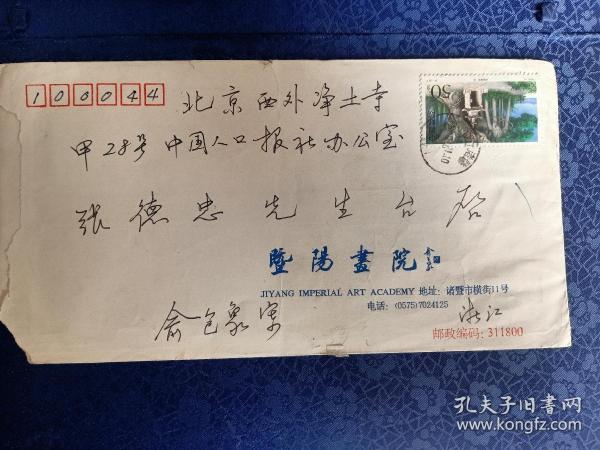 100044
北京西外净土寺
甲28号中国人口报社办公室
张德忠先生台启
暨陽畫院
JIYANG IMPERIAL ART ACADEMY 地址: 诸暨市横街11号
电话: (0575)7024125
俞包象寄
浙江
邮政编码: 311800
50
孔夫子旧书网
www.kongfz.com